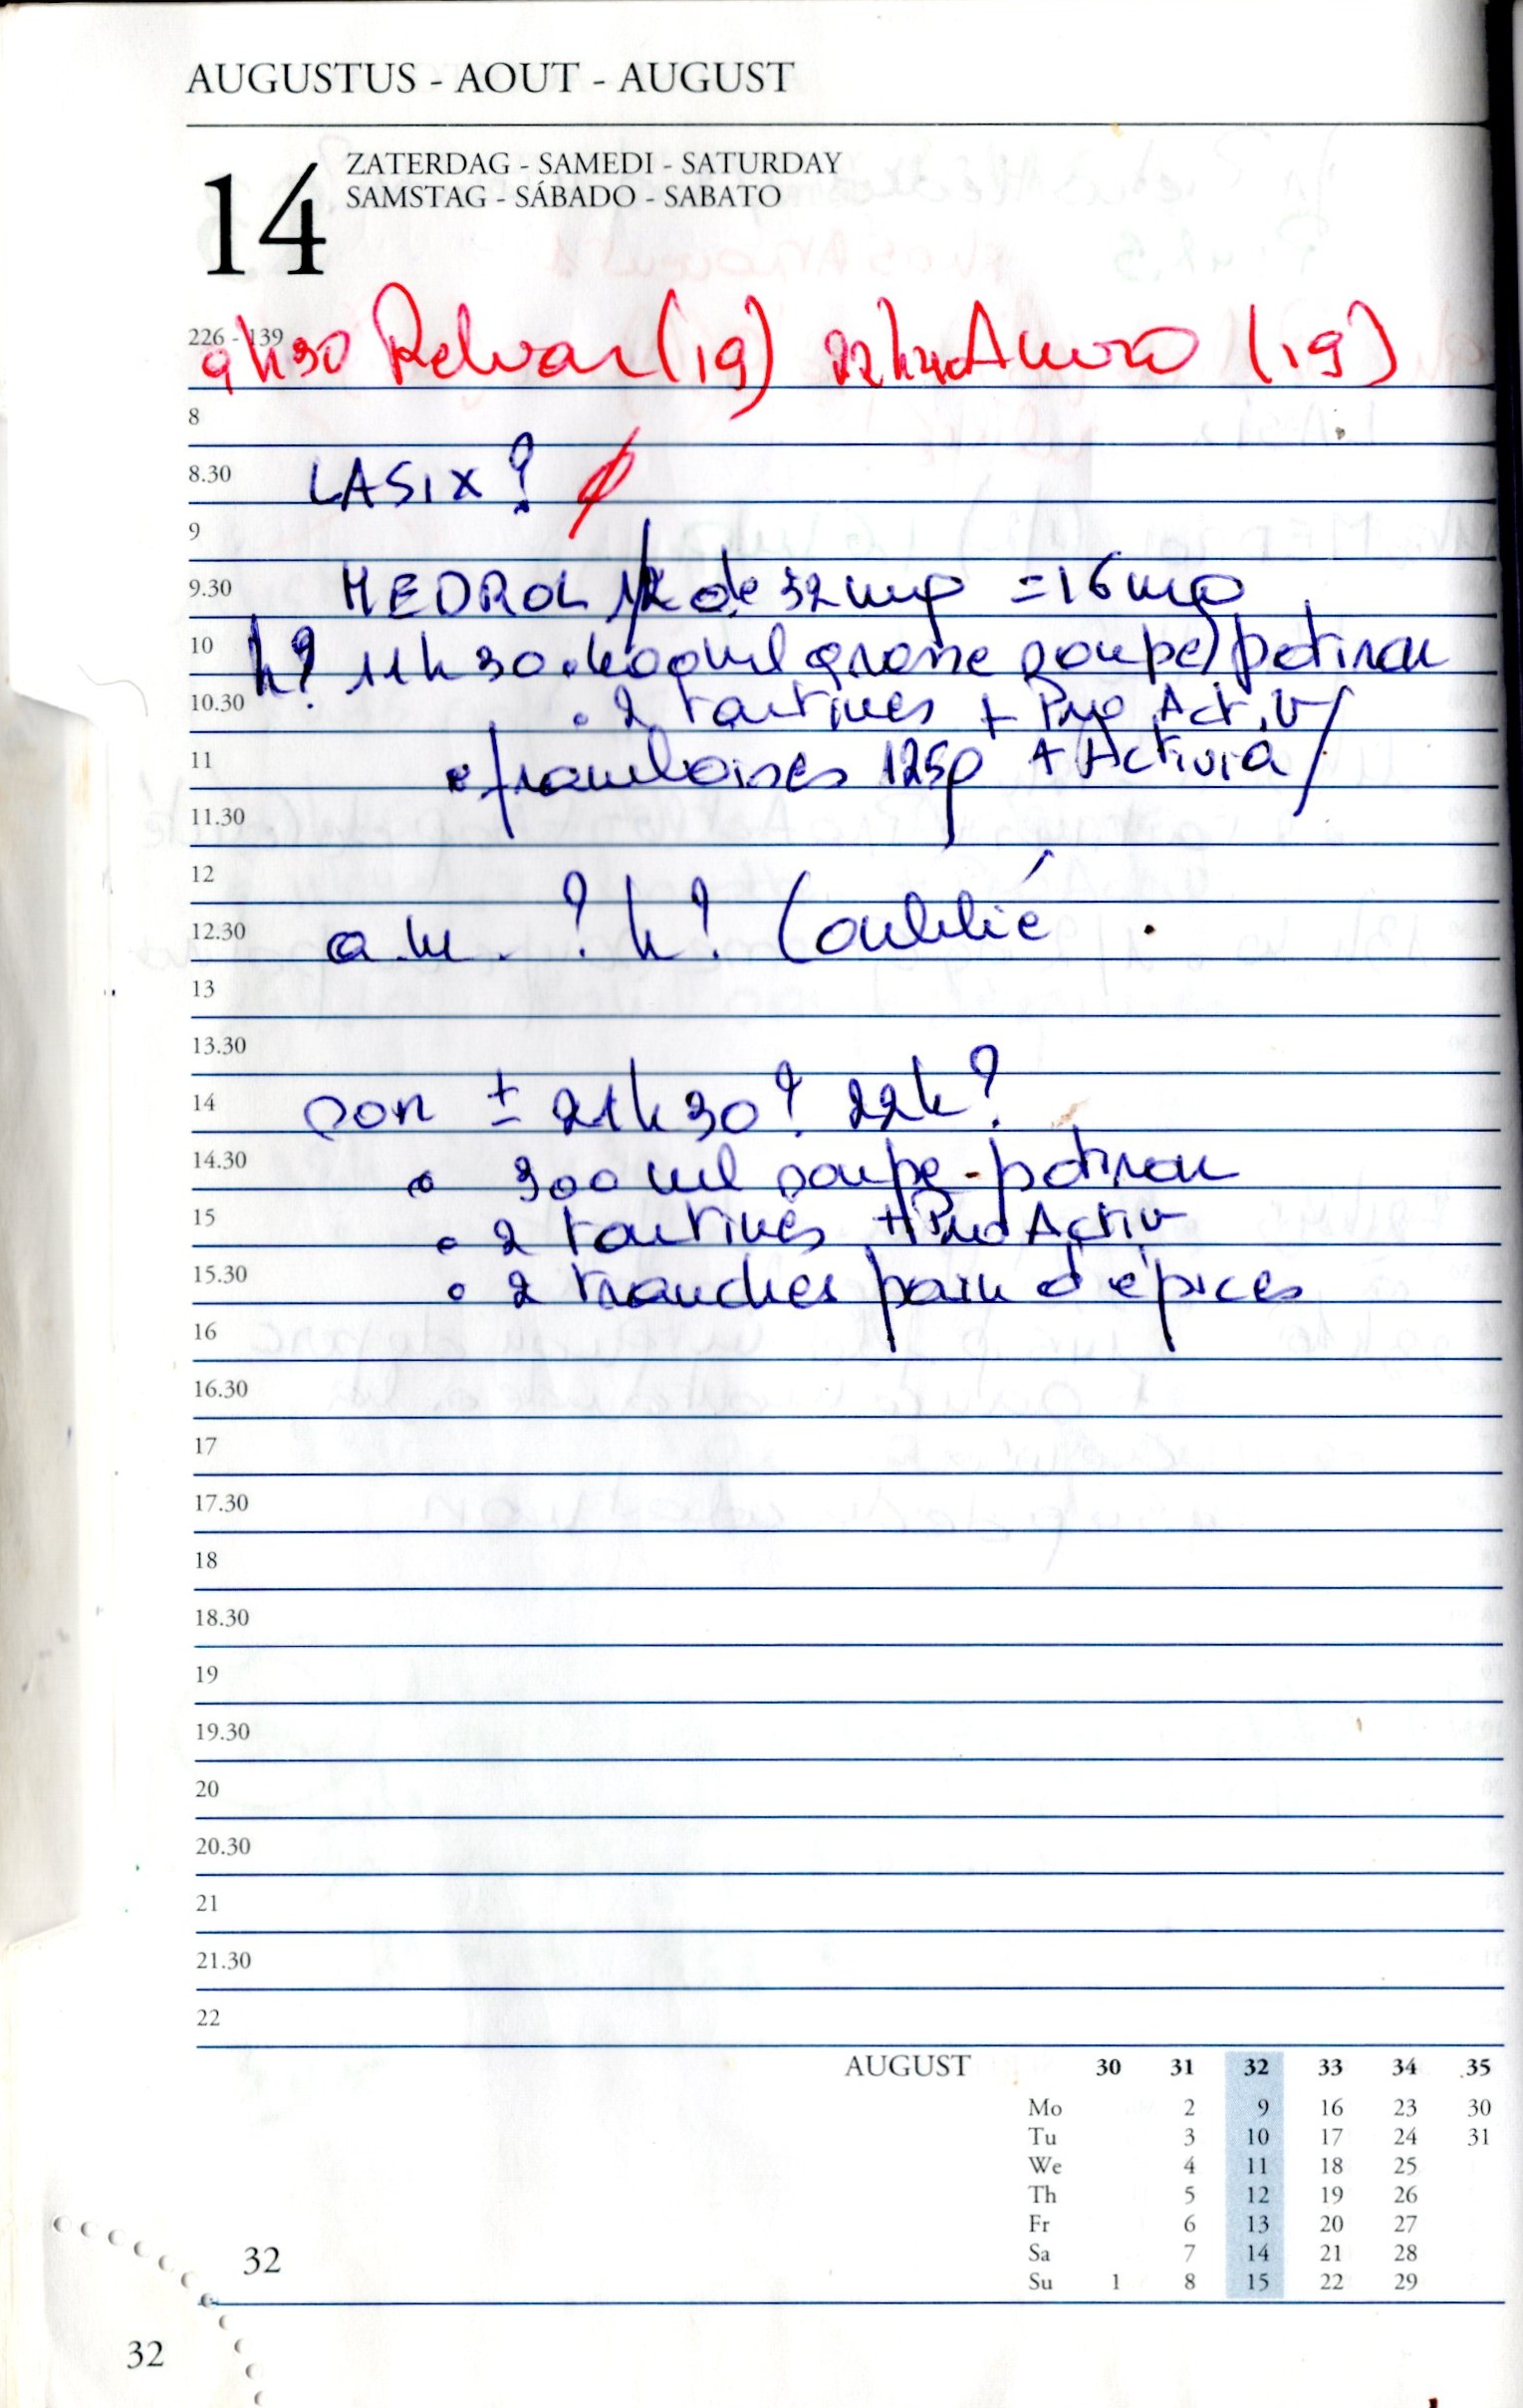 AUGUSTUS - AOUT - AUGUST
14
ZATERDAG - SAMEDI - SATURDAY
SAMSTAG - SÁBADO - SABATO
226 - 139
9h30 Relvar (19) 22h Anoro (19)
8
8.30 LASIX ? ∅
9
9.30 MEDROL 1/2 de 32 mg = 16 mg
10 h? 11h30 • 400 ml grosse soupe potiron
10.30 • 2 tartines + Pro Activ
11 • framboises 125g + Activia
11.30
12
12.30 a.m. ? h? (oublié
13
13.30
14 soir ± 21h30? 22h?
14.30 • 300 ml soupe - potiron
15 • 2 tartines + Pro Activ
15.30 • 2 tranches pain d'épices
16
16.30
17
17.30
18
18.30
19
19.30
20
20.30
21
21.30
22
AUGUST 30 31 32 33 34 35
Mo 2 9 16 23 30
Tu 3 10 17 24 31
We 4 11 18 25
Th 5 12 19 26
Fr 6 13 20 27
Sa 7 14 21 28
Su 1 8 15 22 29
32
32